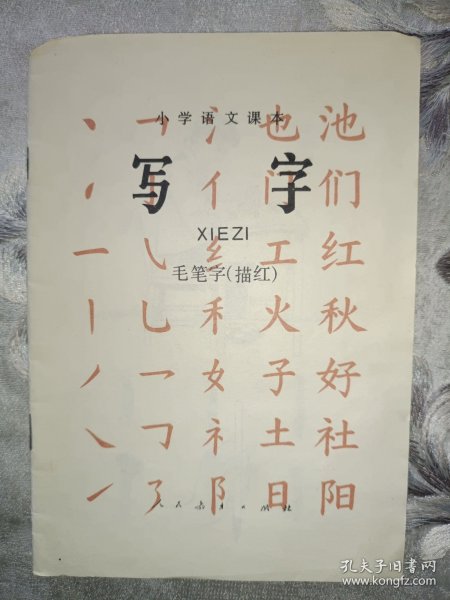 小学语文课本
写字
XIEZI
毛笔字(描红)
丶 乛 氵 也 池
丶 亻 门 们
一 乀 纟 工 红
丨 乚 禾 火 秋
丿 乛 女 子 好
㇏ 𠃌 礻 土 社
㇀ 阝 日 阳
人民教育出版社
孔夫子旧书网
www.kongfz.com